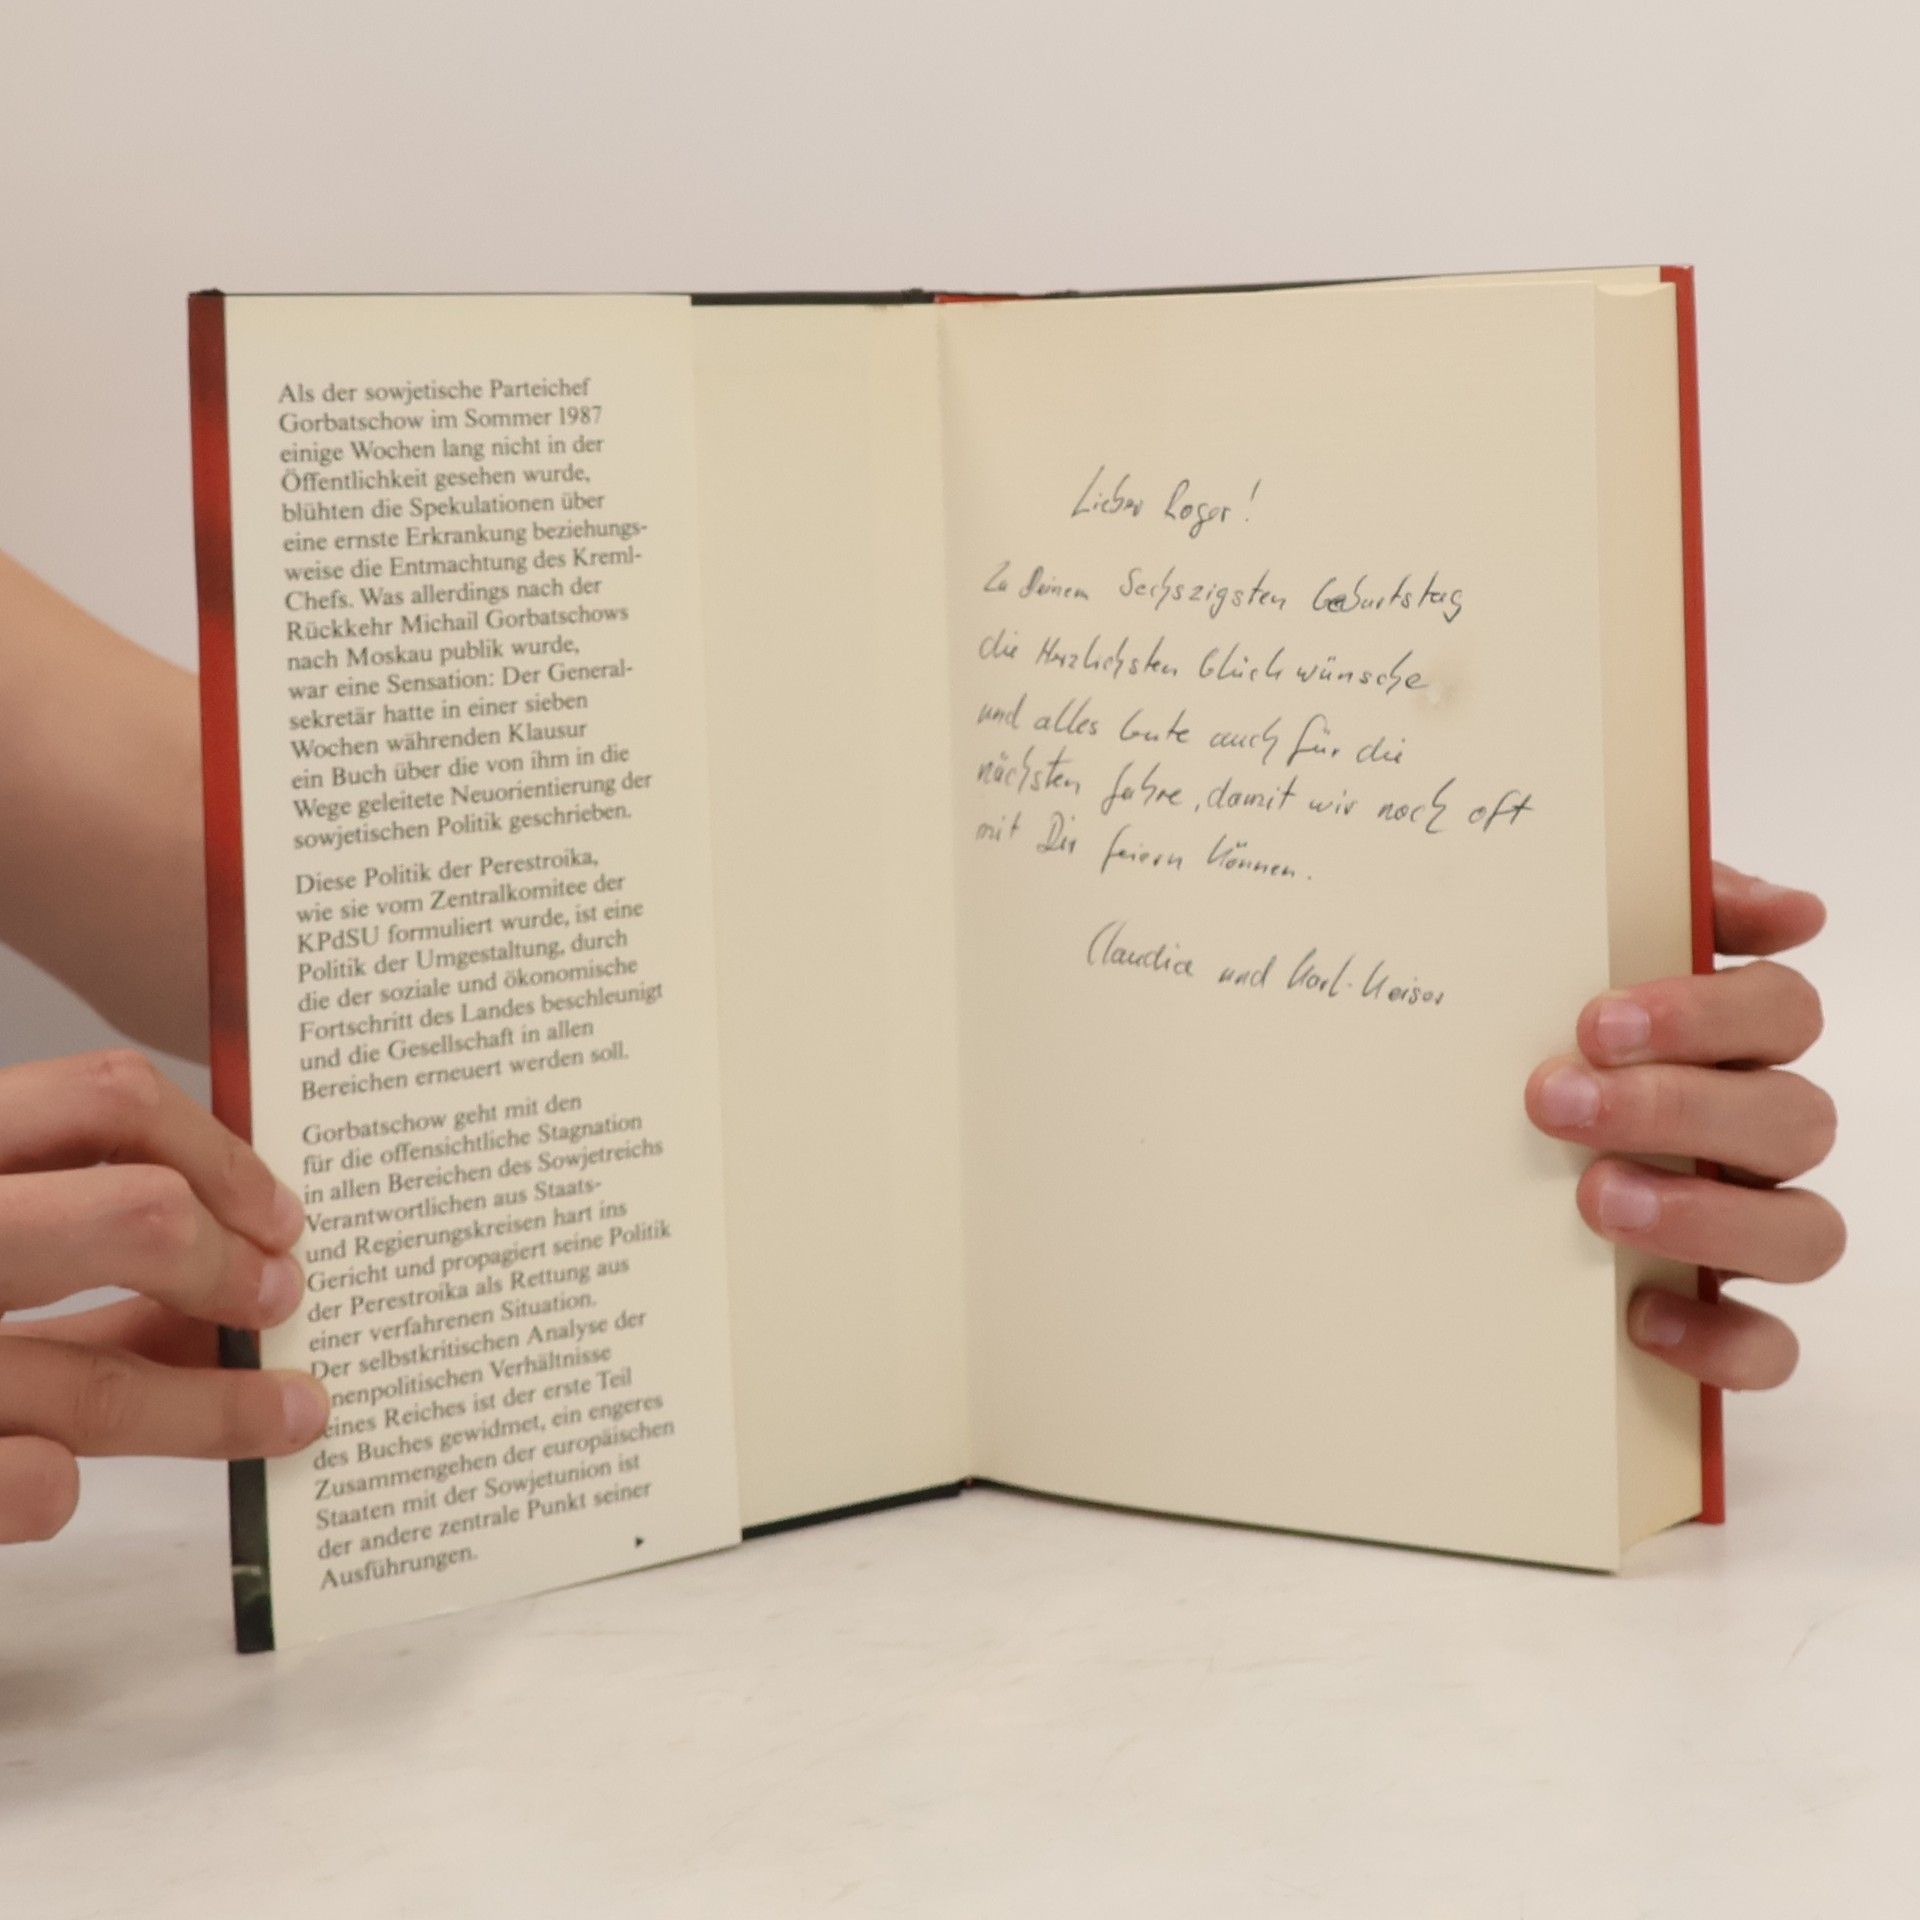 Als der sowjetische Parteichef
Gorbatschow im Sommer 1987
einige Wochen lang nicht in der
Öffentlichkeit gesehen wurde,
blühten die Spekulationen über
eine ernste Erkrankung beziehungs-
weise die Entmachtung des Kreml-
Chefs. Was allerdings nach der
Rückkehr Michail Gorbatschows
nach Moskau publik wurde,
war eine Sensation: Der General-
sekretär hatte in einer sieben
Wochen währenden Klausur
ein Buch über die von ihm in die
Wege geleitete Neuorientierung der
sowjetischen Politik geschrieben.
Diese Politik der Perestroika,
wie sie vom Zentralkomitee der
KPdSU formuliert wurde, ist eine
Politik der Umgestaltung, durch
die der soziale und ökonomische
Fortschritt des Landes beschleunigt
und die Gesellschaft in allen
Bereichen erneuert werden soll.
Gorbatschow geht mit den
für die offensichtliche Stagnation
in allen Bereichen des Sowjetreichs
Verantwortlichen aus Staats-
und Regierungskreisen hart ins
Gericht und propagiert seine Politik
der Perestroika als Rettung aus
einer verfahrenen Situation.
Der selbstkritischen Analyse der
nenpolitischen Verhältnisse
eines Reiches ist der erste Teil
des Buches gewidmet, ein engeres
Zusammengehen der europäischen
Staaten mit der Sowjetunion ist
der andere zentrale Punkt seiner
Ausführungen.
Lieber Roger!
Zu Deinem Sechszigsten Geburtstag
die Herzlichsten Glückwünsche
und alles Gute auch für die
nächsten Jahre, damit wir noch oft
mit Dir feiern können.
Claudia und Karl-